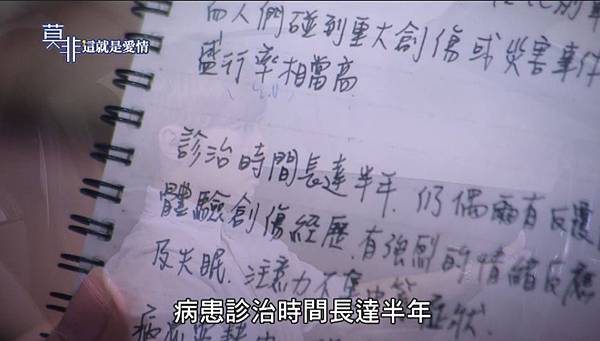 莫非這就是愛情
而人們碰到重大創傷或災害事件
盛行率相當高
診治時間長達半年.仍偶爾有反覆
體驗創傷經歷.有強烈的情緒反應
及失眠.注意力不集中等症狀.
病患診治時間長達半年